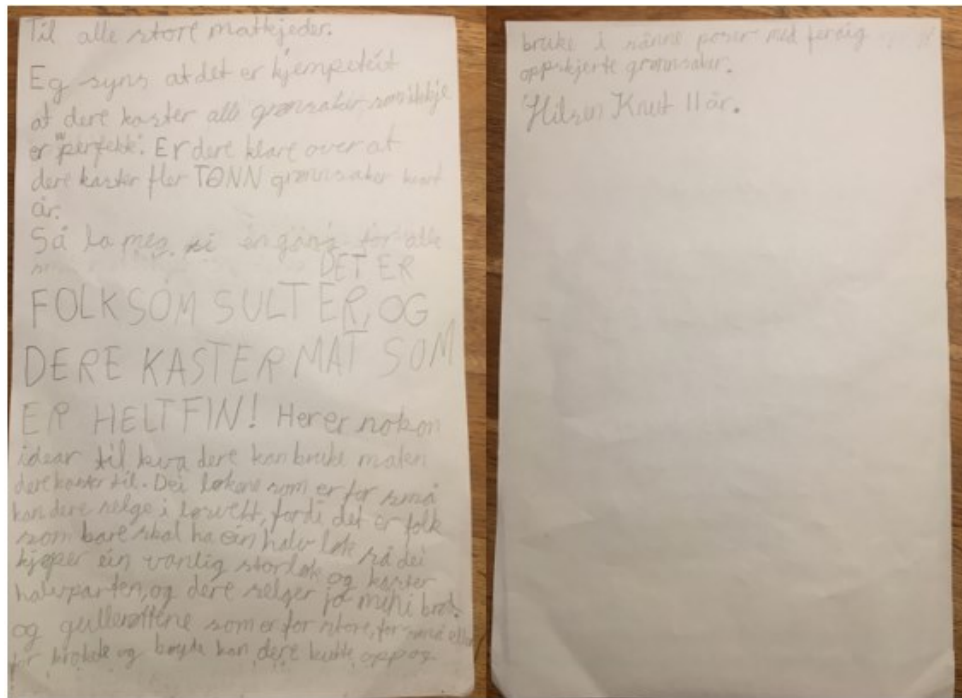 Til alle store matkjeder.
Eg syns at det er kjempeteit
at dere kaster alle grønsaker som ikkje
er "perfekt". Er dere klare over at
dere kaster fler TONN grønnsaker hvort
år.
Så la meg si ein gang for alle
DET ER
FOLK SOM SULTER, OG
DERE KASTER MAT SOM
ER HELT FIN! Her er nokon
idear til kva dere kan bruke maten
dere kaster til. Dei løkene som er for små
kan dere selge i løsvett, fordi det er folk
som bare skal ha ein halv løk så dei
kjøper ein vanlig stor løk og kaster
halvparten, og dere selger jo mini brød.
og gullerøttene som er for store, for små eller
for brokde og bøyde kan dere kutte opp og
bruke i sånne poser med ferdig
oppskjerte grønnsaker.
Hilsen Knut 11 år.